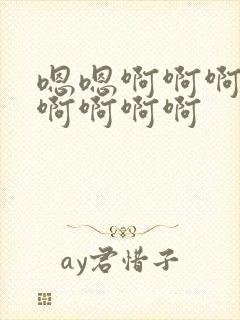 嗯嗯啊啊啊
啊啊啊啊
ay君惜子